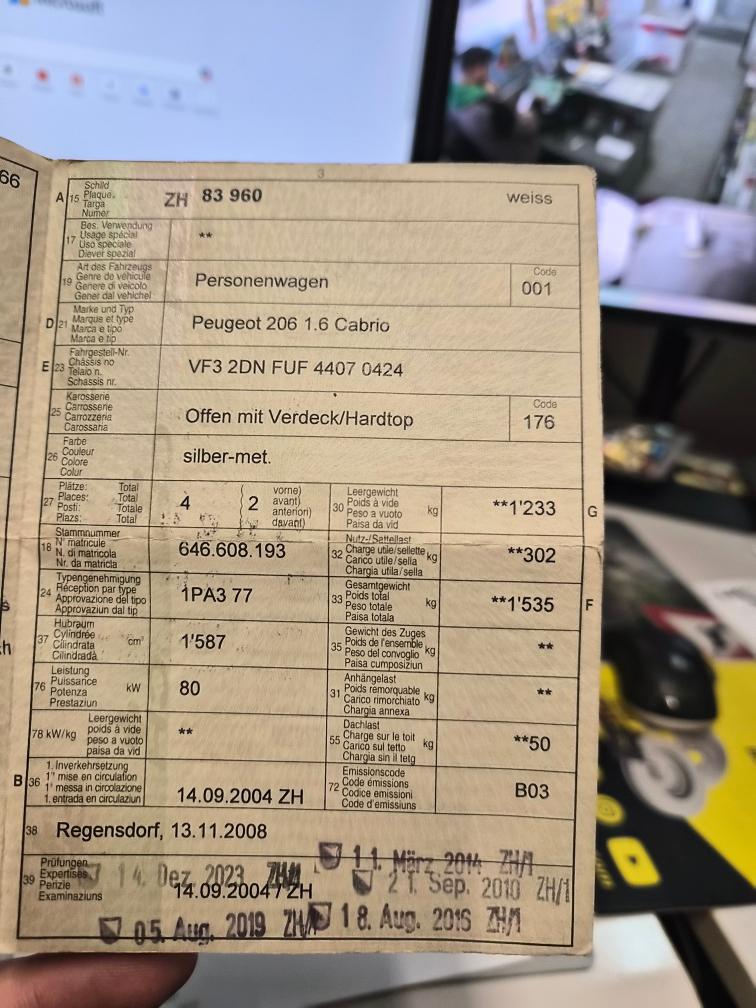 Microsoft
66
3
A 15 Schild
Plaque
Targa
Numer
ZH 83 960 weiss
17 Bes. Verwendung
Usage spécial
Uso speciale
Diever spezial
**
19 Art des Fahrzeugs
Genre de véhicule
Genere di veicolo
Gener dal vehichel
Personenwagen
Code
001
D 21 Marke und Typ
Marque et type
Marca e tipo
Marca e tip
Peugeot 206 1.6 Cabrio
E 23 Fahrgestell-Nr.
Châssis no
Telaio n.
Schassis nr.
VF3 2DN FUF 4407 0424
25 Karosserie
Carrosserie
Carrozzeria
Carossaria
Offen mit Verdeck/Hardtop
Code
176
26 Farbe
Couleur
Colore
Colur
silber-met.
27 Plätze: Total
Places: Total
Posti: Totale
Plazs: Total
4 ( 2 vorne)
avant)
anteriori)
davant)
30 Leergewicht
Poids à vide
Peso a vuoto
Paisa da vid
kg
**1'233 G
18 Stammnummer
N° matricule
N. di matricola
Nr. da matricla
646.608.193
32 Nutz-/Sattellast
Charge utile/sellette
Carico utile/sella
Chargia utila/sella
kg
**302
24 Typengenehmigung
Réception par type
Approvazione del tipo
Approvaziun dal tip
1PA3 77
33 Gesamtgewicht
Poids total
Peso totale
Paisa totala
kg
**1'535 F
37 Hubraum
Cylindrée
Cilindrata
Cilindrada
cm³
1'587
35 Gewicht des Zuges
Poids de l'ensemble
Peso del convoglio
Paisa cumposiziun
kg
**
76 Leistung
Puissance
Potenza
Prestaziun
kW
80
31 Anhängelast
Poids remorquable
Carico rimorchiato
Chargia annexa
kg
**
78 kW/kg Leergewicht
poids à vide
peso a vuoto
paisa da vid
**
55 Dachlast
Charge sur le toit
Carico sul tetto
Chargia sin il tetg
kg
**50
B 36 1. Inverkehrsetzung
1re mise en circulation
1a messa in circolazione
1. entrada en circulaziun
14.09.2004 ZH
72 Emissionscode
Code émissions
Codice emissioni
Code d'emissiuns
B03
38 Regensdorf, 13.11.2008
39 Prüfungen
Expertises
Perizie
Examinaziuns
11. März 2014 ZH/1
14. Dez. 2023 ZH/1
14.09.2004 / ZH
21. Sep. 2010 ZH/1
05. Aug. 2019 ZH/1
18. Aug. 2016 ZH/1